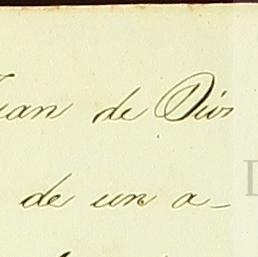 Juan de Dios
de un a-